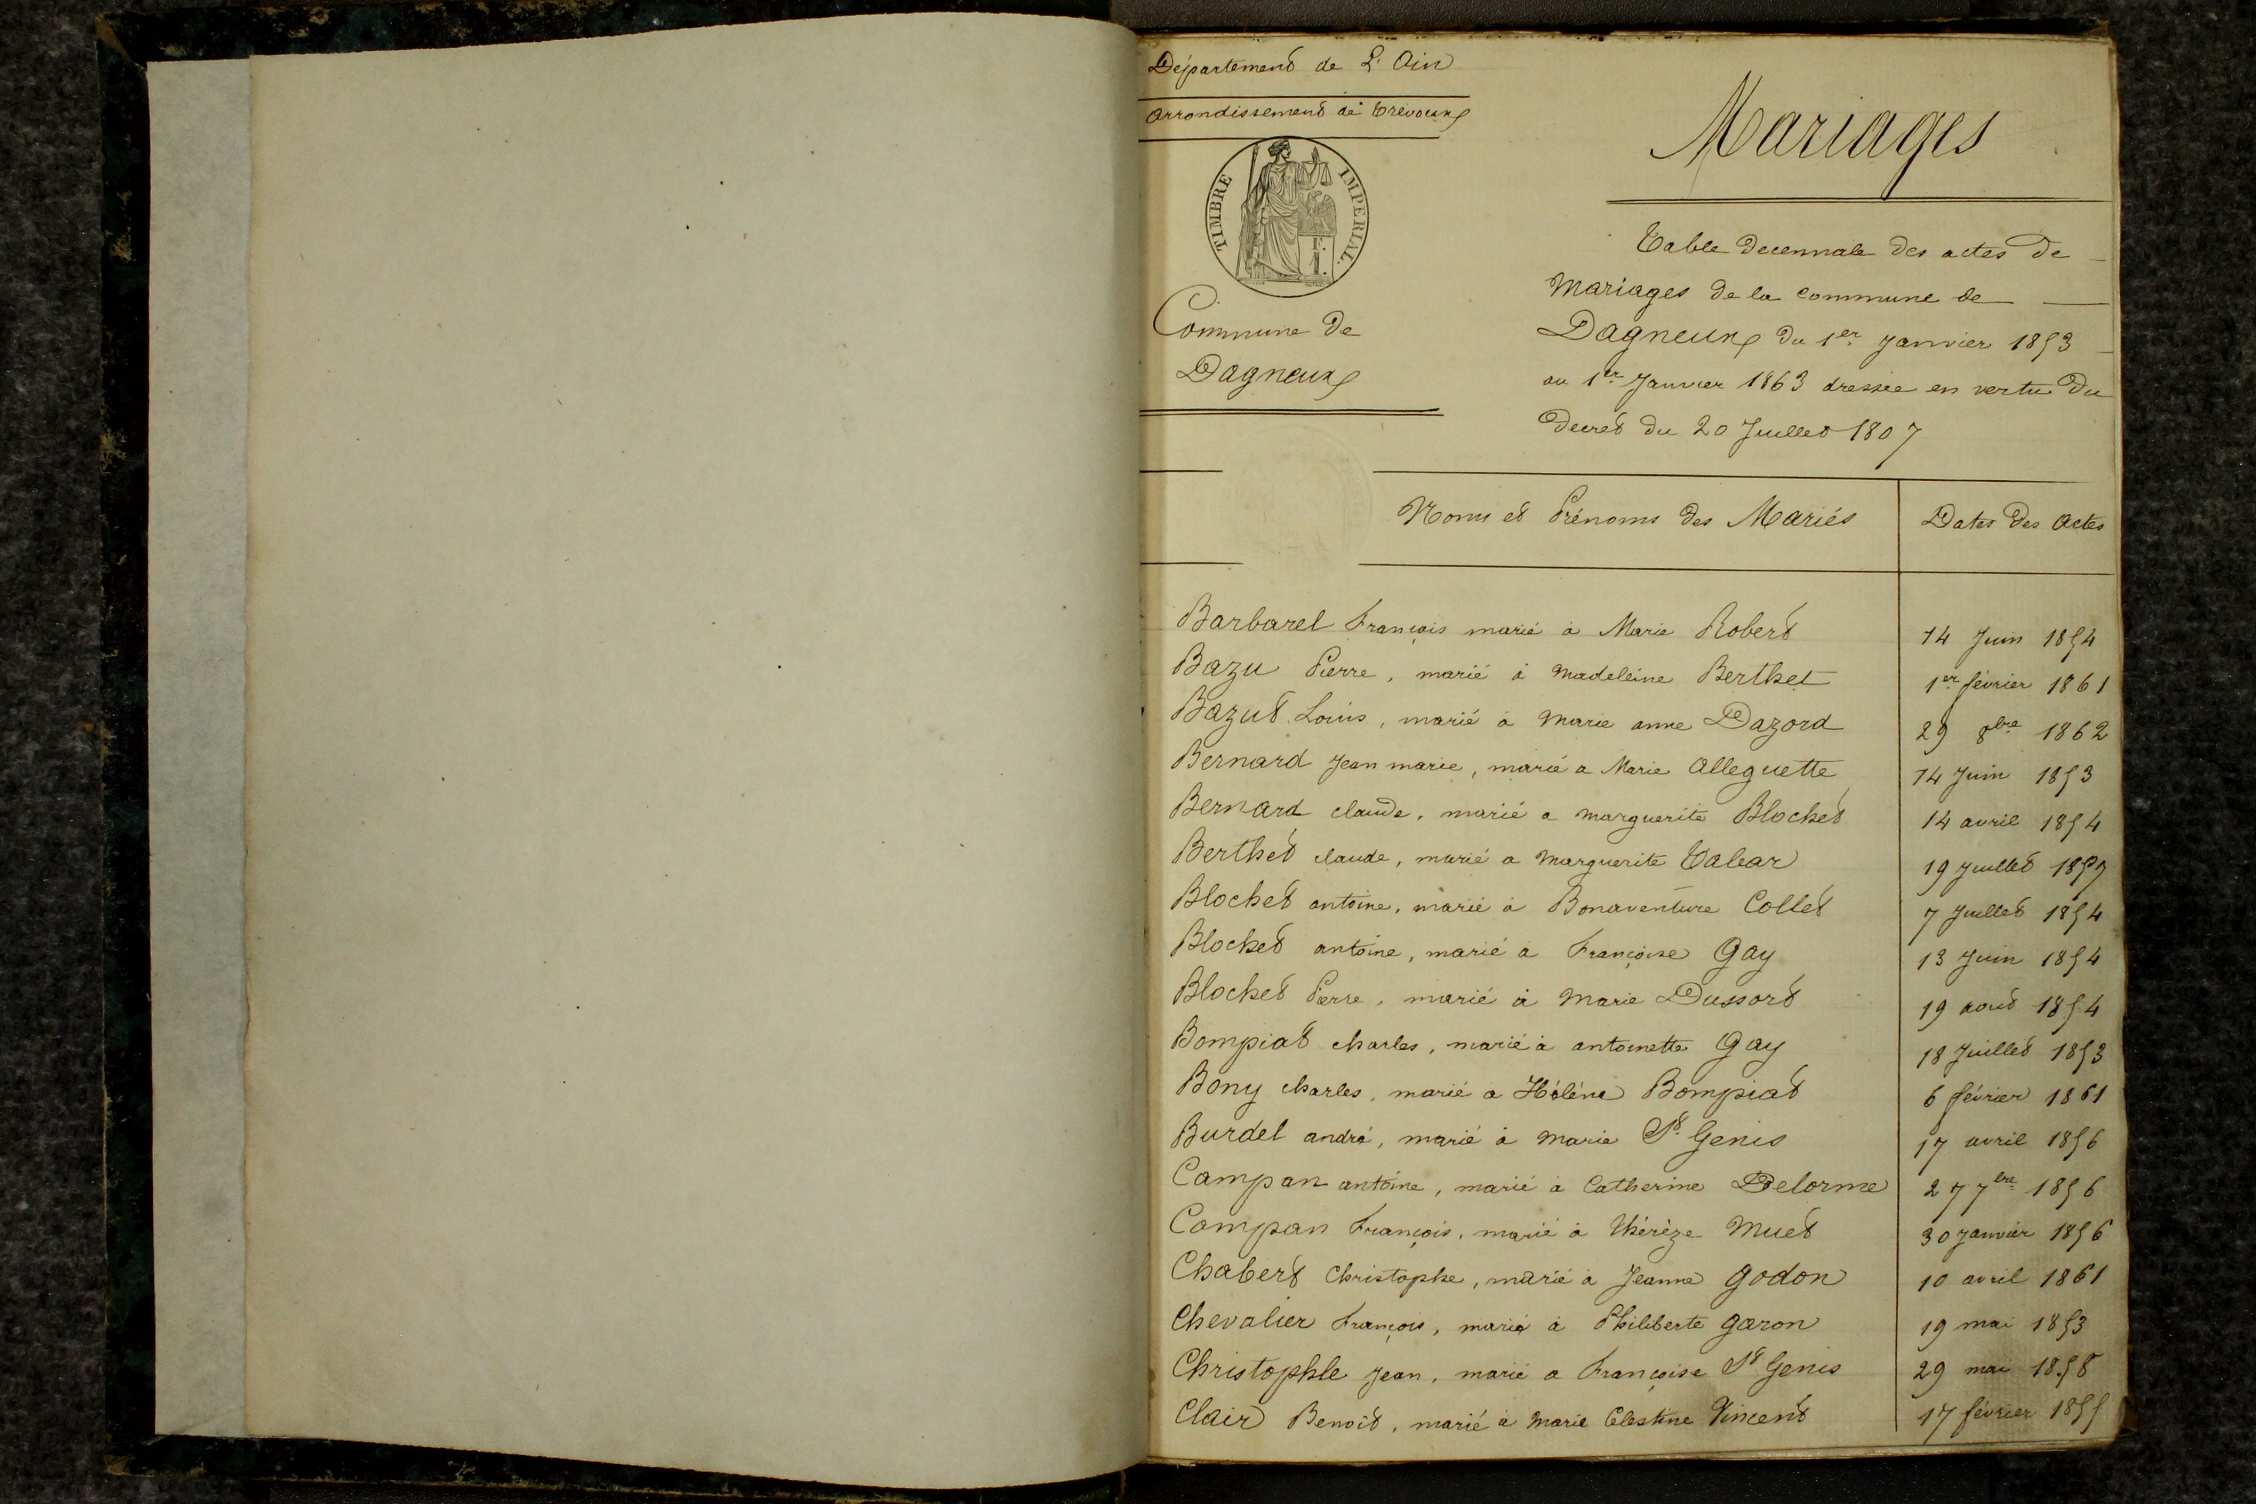 Département de L'Ain
arrondissement de Trévoux
TIMBRE IMPERIAL.
Commune de
Dagneux
Mariages
Table decennale des actes de
Mariages de la commune de
Dagneux du 1er Janvier 1853
au 1er Janvier 1863 dressée en vertu du
Decret du 20 Juillet 1807
Noms et Prénoms des Mariés Dates des Actes
Barbarel François marié à Marie Robert 14 Juin 1854
Bazu Pierre, marié à Madeleine Berthet 1er février 1861
Bazut Louis, marié à Marie anne Dazord 29 8bre 1862
Bernard Jean marie, marié a Marie Alleguette 14 Juin 1853
Bernard claude, marié a Marguerite Blochet 14 avril 1854
Berthet claude, marié a Marguerite 19 Juillet 1859
Blochet antoine, marié à Bonaventure Collet 7 Juillet 1854
Blochet antoine, marié à Françoise Gay 13 Juin 1854
Blochet Pierre, marié à Marie Dussort 19 aout 1854
Bompiat charles, marié à antoinette Gay 18 Juillet 1853
Bony charles, marié a Hélène Bompiat 6 février 1861
Burdel andré, marié à Marie St Genis 17 avril 1856
Campan antoine, marié à Catherine Delorme 27 7bre 1856
Campan François, marié à Thérèze Muet 30 Janvier 1856
Chabert Christophe, marié à Jeanne Godon 10 avril 1861
Chevalier François, marié à Philiberte Garon 19 mai 1853
Christophle Jean, marié a Françoise St Genis 29 mai 1858
Clair Benoit, marié à Marie Celestine Vincent 17 février 1855